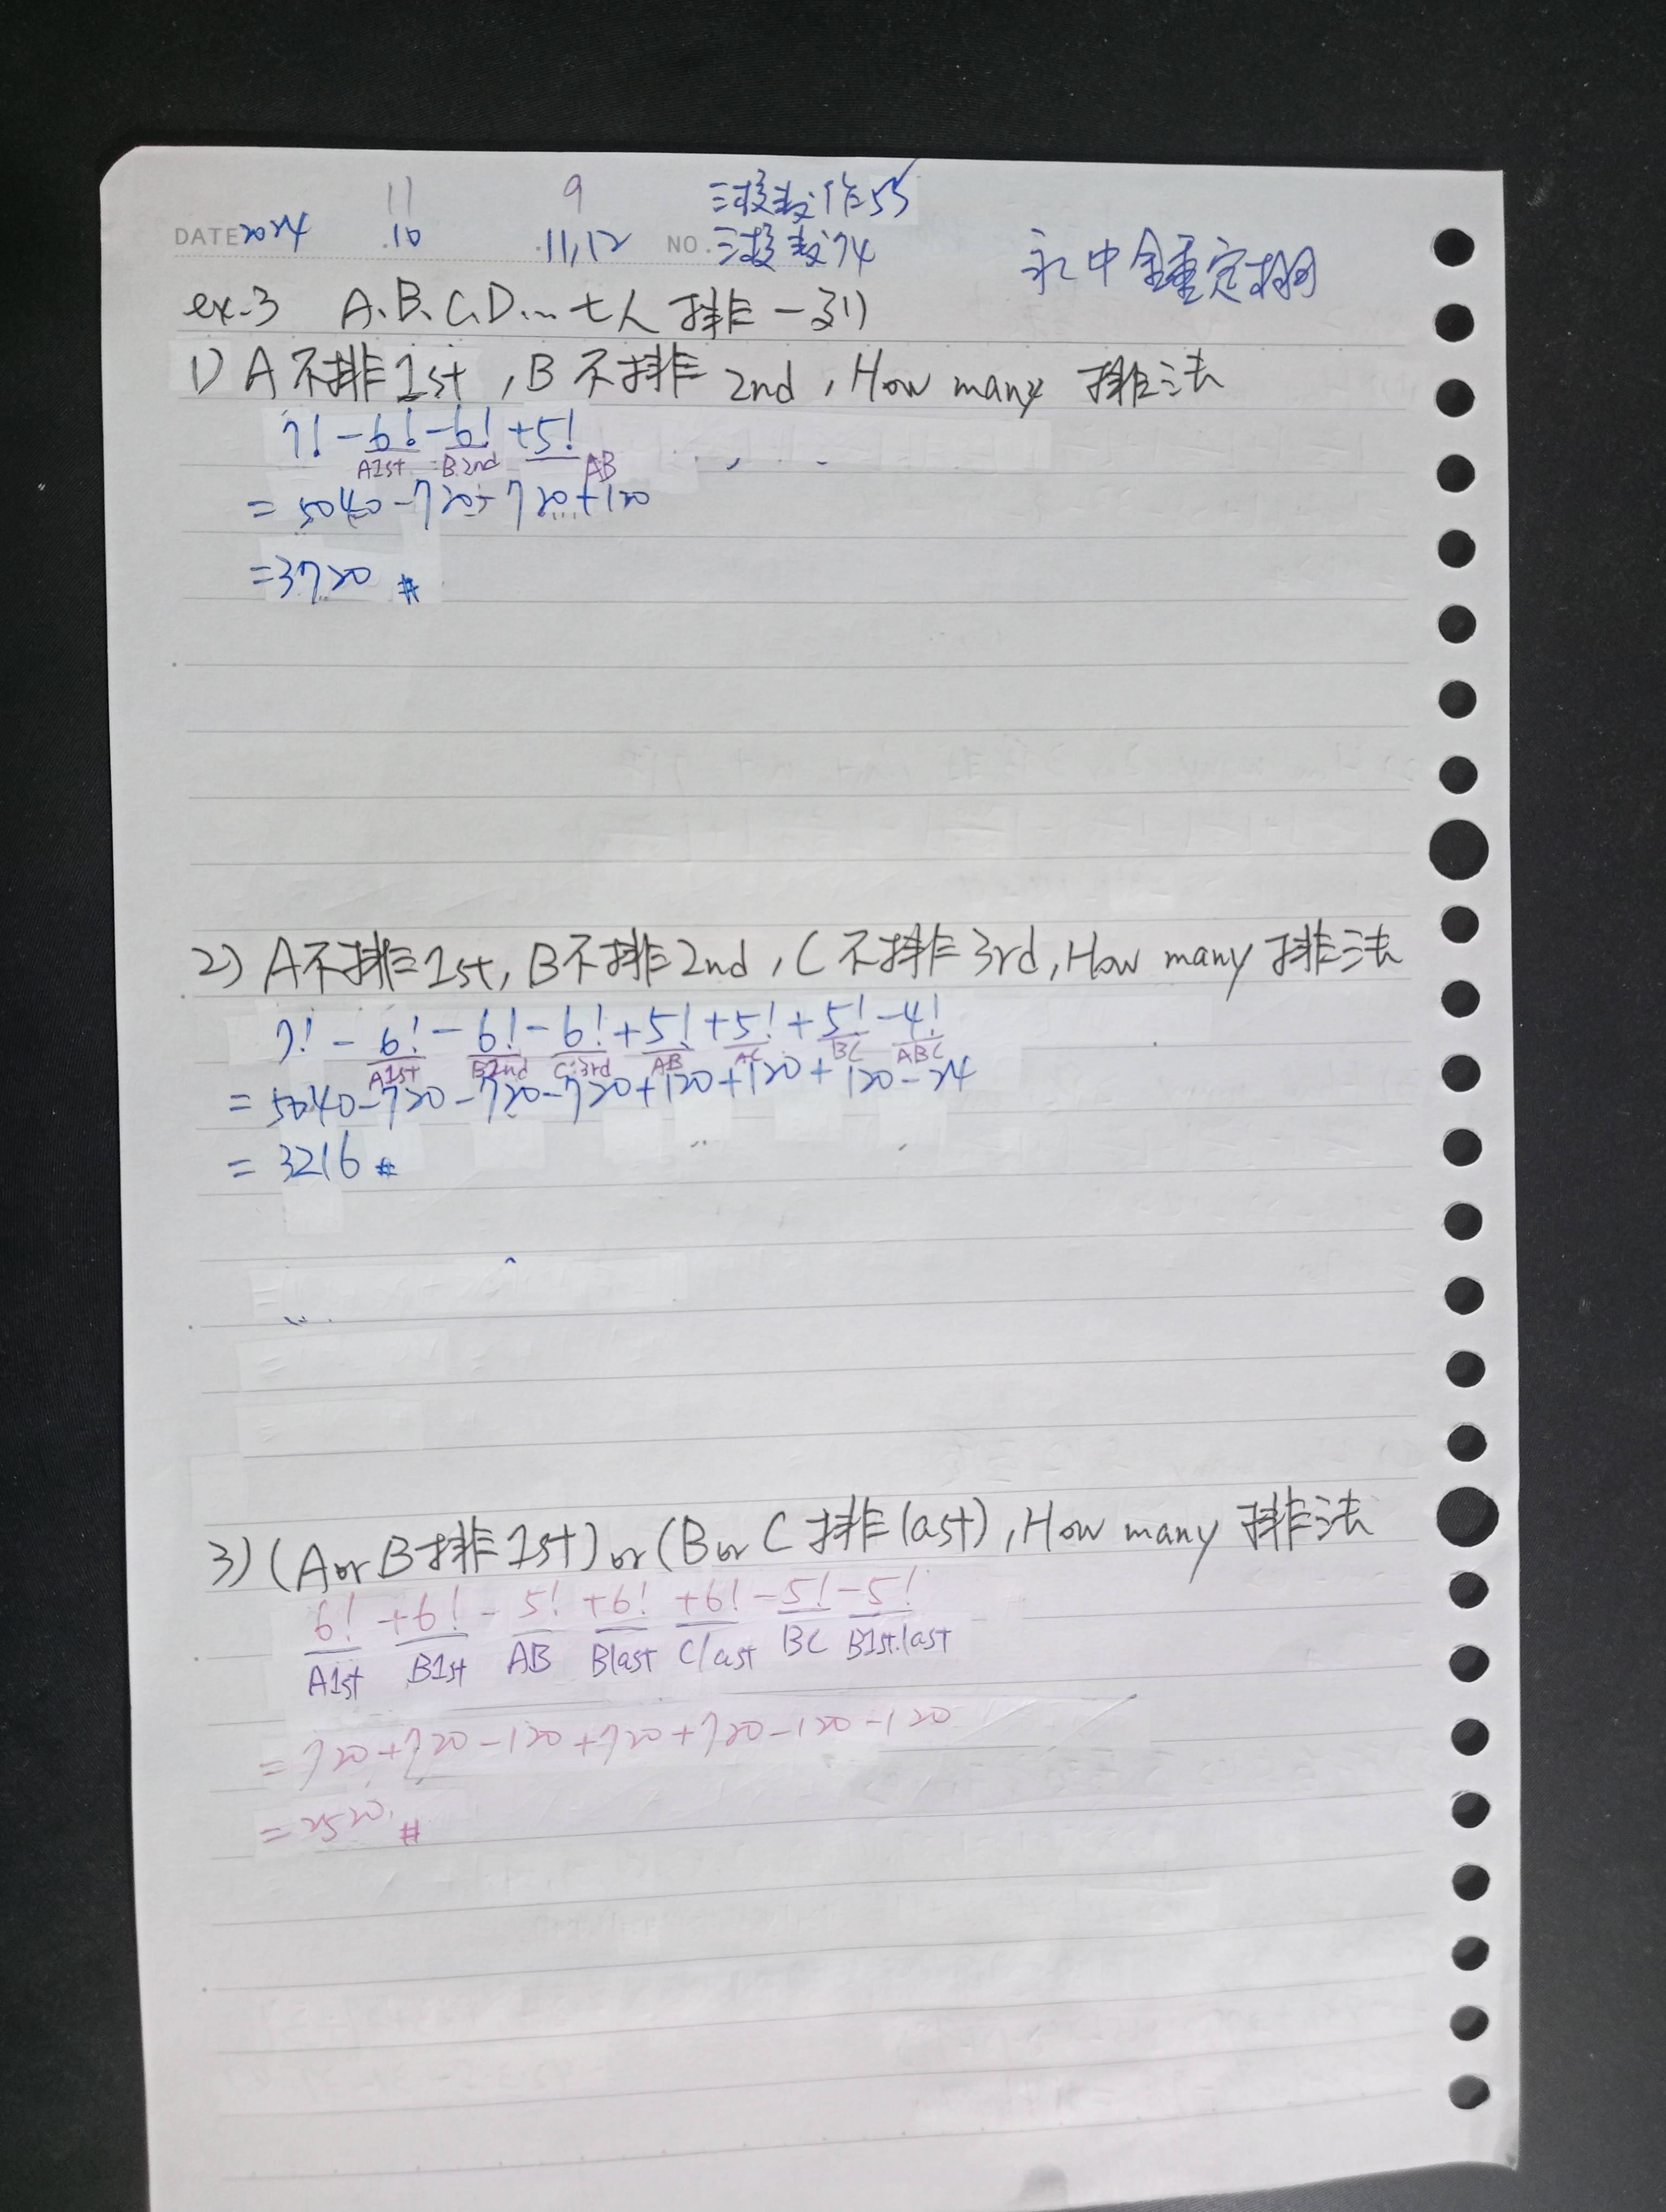 11 9 三授教作55
DATE 2024 .10 .11,12 NO. 三授教74
永中鍾定栩
ex.3 A、B、C、D... 七人排一列
1) A不排1st , B不排2nd , How many 排法
7! - 6! - 6! + 5!
A1st B2nd AB
= 5040 - 720 - 720 + 120
= 3720 #
2) A不排1st, B不排2nd , C不排3rd, How many 排法
7! - 6! - 6! - 6! + 5! + 5! + 5! - 4!
A1st B2nd C3rd AB AC BC ABC
= 5040 - 720 - 720 - 720 + 120 + 120 + 120 - 24
= 3216 #
3) (A or B排1st) or (B or C排last) , How many 排法
6! + 6! - 5! + 6! + 6! - 5! - 5!
A1st B1st AB Blast Clast BC B1st.last
= 720 + 720 - 120 + 720 + 720 - 120 - 120
= 2520 #